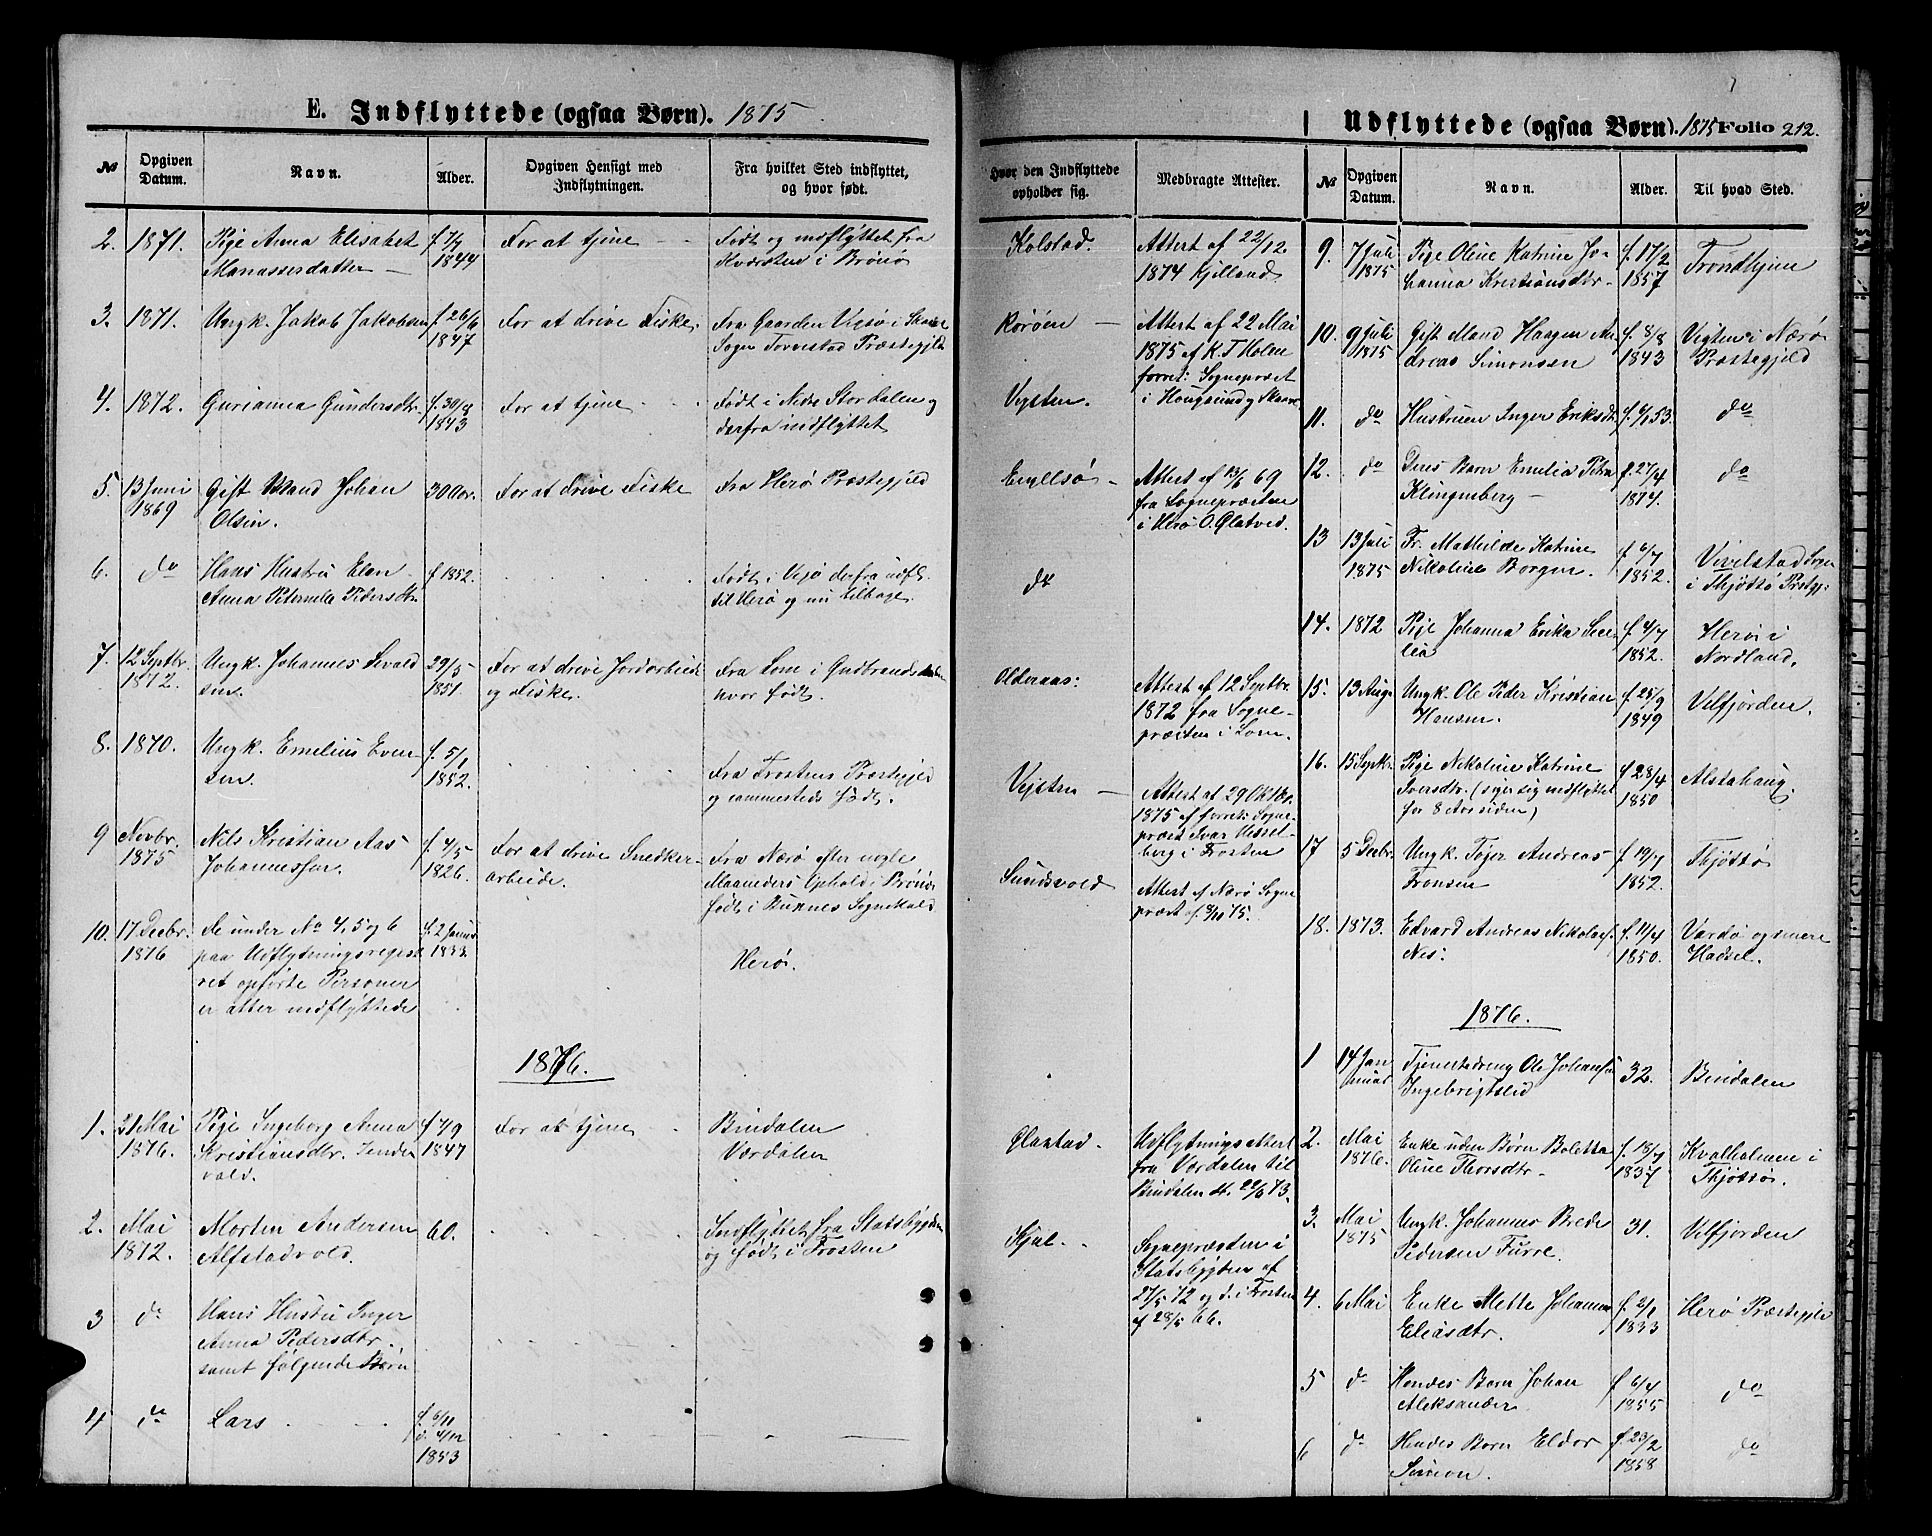 E. Indflyttede (ogsaa Børn). 1875
№
Opgiven
Datum.
Navn.
Alder.
Opgiven Hensigt med
Indflytningen.
Fra hvilket Sted indflyttet,
og hvor født.
2. 1871. Pige Anna Elisabet f. 7/7 For at tjene Født og indflyttet fra
Manassesdatter 1844 i Brønø
3. 1871. Ungk. Jakob Jakobsen f. 26/6 For at drive Fiske. Fra Gaarden i
1847 Sogn Torvestad Præstegjeld
4. 1872. Gurianna Gundersdtr. f. 30/8 For at tjene Født i Nedre Stordalen og
1843 derfra indflyttet
5. 13 Juni Gift Mand Johan 30 Aar. For at drive Fiske Fra Herø Præstegjeld
1869 Olsen.
6. do Hans Hustru Elen f 1852. Født i Vejø derfra udfl.
Anna Peternella Pedersdtr. til Herø og nu tilbage.
7. 12 Septbr. Ungk. Johannes Sivald 29/5 For at drive Jordarbeide Fra Lom i Gudbrandsdalen
1872. sen. 1851. og Fiske. hvor født.
8. 1870. Ungk. Emelius Even f. 5/1
sen. 1852. Fra Frostens Præstegjeld
og sammesteds født.
9 Novbr. Nils Kristian Aas f. 4/5 For at drive Snedker- Fra Nærø efter nogle
1875 Johannessen. 1826. arbeide. Maaneders Ophold i Brønø
født i Sognekald
10. 17 Decbr. De under No 4, 5 og 6 f. 2 Januar
1876 paa Udflytningsregist 1833 Herø.
ret opførte Personer
er atter indflyttede
1876.
1. 31 Mai Pige Ingeborg Anna f 7/9 For at tjene Bindalen
1876. Kristiansdtr. 1847 Værdalen
vold.
2. Mai Morten Andersen 60. Indflyttet fra Statsbygden
1872. Alfstadvold. og født i Frosten
3 do Hans Hustru Inger
Anna Pedersdtr.
samt følgende Børn
4 do Lars f. 6/11
d. 4/12
1853
Udflyttede (ogsaa Børn). 1875 Folio 212.
Hvor den Indflyttede
opholder sig.
Medbragte Attester.
№
Opgiven
Datum.
Navn.
Alder.
Til hvad Sted.
Kolstad. Attest af 22/12
1874
Rorøen Attest af 22 Mai
1875 af K. T Holm
forret: Sognepræst
Vejsten. i Hougsund og Skaare
Attest af 13/6 69
fra Sognepræsten
i Herø O. Qlatved.
do
Olderaas: Attest af 12 Septbr.
1872 fra Sogne-
præsten i Lom.
Vejsten Attest af 29 Oktbr.
1875 af forret: Sogne-
præst Ivar Hessel-
berg i Frosten
Sundsvold Attest af Nærø Sogne
præst af 8/11 75.
Qlastad. Udflytningsattest
fra Værdalen til
Bindalen dt. 22/6 73.
Kjul. Sognepræsten i
Statsbygden af
27/5 72 og d. i Frosten
af 28/5 66.
9. 7 Juli Pige Oline Katrine Jo- f. 17/2 Trondhjem
1875 hanna Kristiansdtr. 1857
10. 9 Juli Gift Mand Haagen An f. 8/8 Vigten i Nærø
1875 dreas Simonsen 1843 Præstegjeld
11. do Hustruen Inger Eriksdt. f. 4/1 53. do
12. do Deres Barn Emelia f. 27/4 do
Klingenberg 1874.
13 13 Juli Fr. Mathilde Katrine f 6/7 Vivelstad Sogn
1875 Nikoline Borgen. 1852. i Thjøttø Prestgj:
14. 1872 Pige Johanna Erika Sese f. 4/7 Herø i
lia 1852. Nordland.
15. 13 Aug. Ungk. Ole Peder Kristian f. 25/9 Velfjorden.
Hansen. 1849
16. 15 Septbr. Pige Nikoline Katrine f 28/4 Alstahaug.
Iversdtr. (siger sig indflyttet 1850
for 8 Aar siden)
17 5 Decbr. Ungk. Tøjer Andreas f 19/7 Thjøttø
Fronsen 1852.
18. 1873. Edvard Andreas Nikolajs. f. 11/4 Vardø og senere
Nes: 1850. Hadsel.
1876.
1 14 Jan Tjenestedreng Ole Johansen 32. Bindalen
nuar Ingebrigtslid
2. Mai Enke uden Børn Boletta f. 18/7 Kvalholmen i
1876. Oline Thorsdtr. 1837 Thjøttø.
3. Mai Ungk. Johannes Brede 31. Velfjorden
1875 Pedersen Furre.
4. 6 Mai Enke Mette Johanna f. 2/1 Herø Præstegjeld
Eliasdtr. 1833
5 do Hendes Barn Johan f 6/4 do
Aleksander 1855
6 do Hendes Barn Eldor f. 23/2 do
Simion. 1858